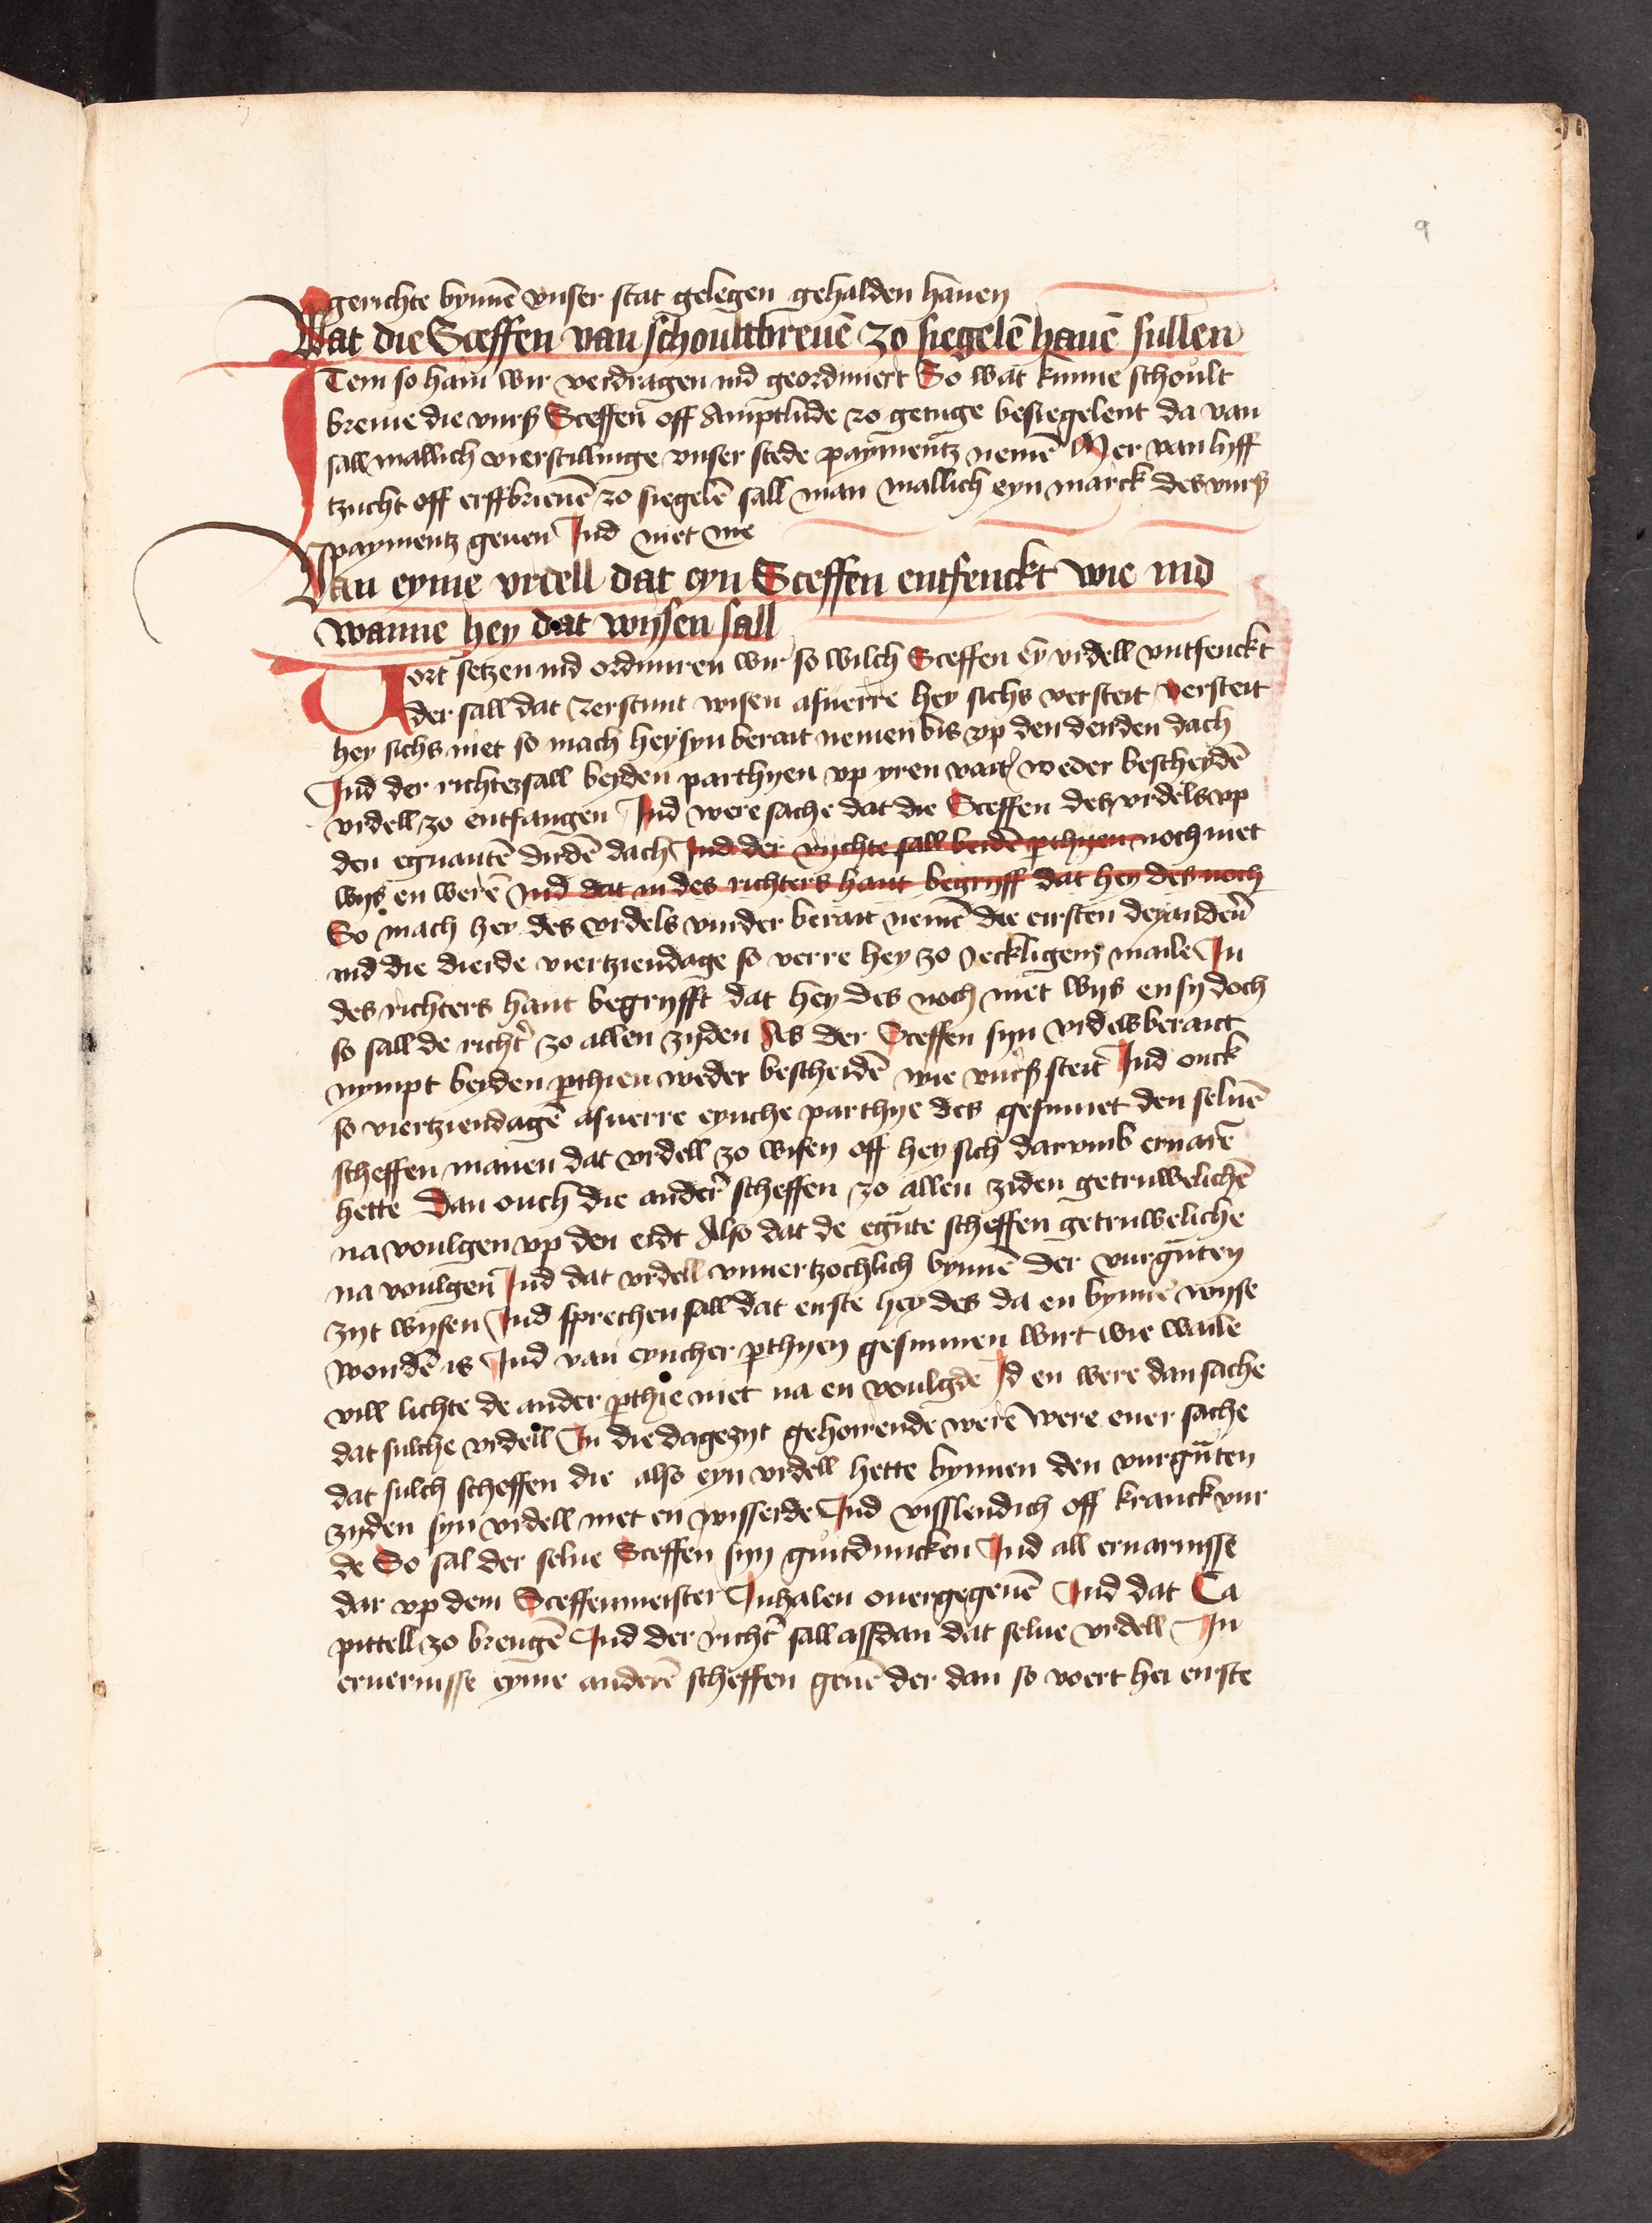 9
gerichte bynnē vnser stat gelegen gehalden hauen
Wat die Sceffen van schoultbreuē zo siegelē hauē sullen
ITem so hain wir verdragen ind geordiniert So wat kunne schoult
breiue die vurß Sceffen off Amptlude zo getuge besiegelent da van
sall mallich vierschillinge vnser stede paymentz nemē Mer van lyff
tzucht off erffbrieuē zo siegelē sall man mallich eyn marck des vurß
paymentz geuen Ind niet me
Van eyme vrdell dat eyn Sceffen entfenckt wie ind
wanne hey dat wysen sall
Vort setzen ind ordiniren wir so wilch Sceffen ey vrdell vntfenckt
der sall dat zerstunt wisen asuerre hey sichs versteit versteit
hey sichs niet so mach hey syn berait nemen bis vp den derden dach
Ind der richter sall beyden parthyen vp yren vait weder bescheydē
vrdell zo entfangen Ind were sache dat die Sceffen des vrdels vp
den egnantē dirdē dach Ind der richte sall beidē pthyen noch niet
wijs en werē Ind dat in des richters hant begryff dat hey des noch
So mach hey des vrdels vurder berait nemē die eirsten dey anderñ
ind die dierde viertziendage so verre hey zo yeckligem maile In
des richters hant begryfft dat hey des noch niet wijs en sy doch
so sall de richt' zo allen zijden As der Sceffen syn vrdels berait
nympt beiden pthien weder bescheidē wie vurß steit Ind ouck
so viertziendagē asuerre eynche parthye des gesinnet den seluē
scheffen manen dat vrdell zo wisen off hey sich darumb eruarē
hette Dan ouch die ander' scheffen zo allen ziden getruwelichē
na voulgen vp den eidt Also dat de egnte scheffen getruweliche
na voulgen Ind dat vrdell vnuertzochlich bynnē der vurgnten
zijt wijsen Ind sprechen sall dat eirste hey des da en bynne wijse
wordē is Ind van eyncher pthyen gesinnen wirt wie waile
vill lichte de ander pthie niet na en voulgde Id en were dan sache
dat sulche vrdell In die dagezijt gehoirende werē were euer sache
dat sulch scheffen die also eyn vrdell hette bynnen den vurgnten
zijden syn vrdell niet en wisserde Ind visslendich off kranck wur
de So sal der selue Sceffen syn guitduncken Ind all eruarnisse
dar vp dem Sceffenmeister Inhalen ouergegeuē Ind dat Ca
pittell zo brengē Ind der richt' sall assdan dat selue vrdell In
eruernisse eyme anderē scheffen geuē der dan so voert hei eirste